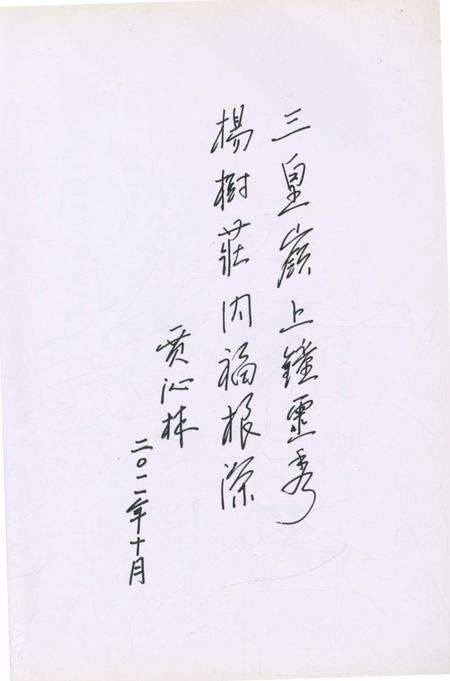 三皇嶺上鐘靈秀
楊樹莊内福根深
贾沁林
二〇一一年十月